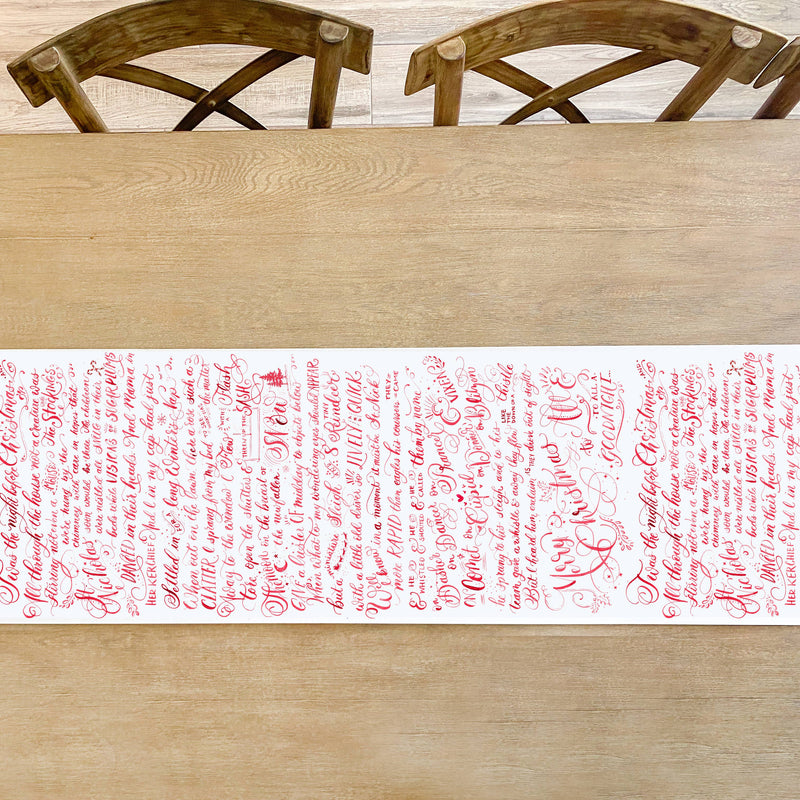 Twas the night before Christmas
All through the house not a creature was
Stirring not even a mouse. The Stockings
were hung by the
chimney with care in hopes that
Nicholas soon would be there. The children
were nestled all SNUG in their
beds while VISIONS OF SUGARPLUMS
DANCED in their heads. And Mama in
HER KERCHIEF & I in my cap had just
Settled in for a long Winter's Nap
When out on the lawn there arose such a
CLATTER I sprang from my bed to see what was the matter
Away to the window I Flew like a Flash
tore open the shutters &
THREW UP THE SASH
The Moon on the breast of
the new fallen Snow
GAVE a luster OF midday to objects below
When what to my wondering eyes should APPEAR
but a miniature Sleigh & 8 TINY Reindeer
with a little old driver so LIVELY & QUICK
I knew in a moment it must be St. Nick
more RAPID than eagles his coursers THEY CAME
& HE WHISTLED & SHOUTED & CALLED them by name
on Dasher on Dancer on Prancer & VIXEN
ON Comet on Cupid on Donder on Blitzen
he sprang to his sleigh, and to his
team gave a whistle & away they flew LIKE THE DOWN OF A thistle
But I heard him exclaim as he drove out of sight
Merry Christmas TO ALL
& TO ALL A GOODNIGHT...
Twas the night before Christmas
All through the house not a creature was
Stirring not even a mouse. The Stockings
were hung by the
chimney with care in hopes that
Nicholas soon would be there. The children
were nestled all SNUG in their
beds while VISIONS OF SUGARPLUMS
DANCED in their heads. And Mama in
HER KERCHIEF & I in my cap had just